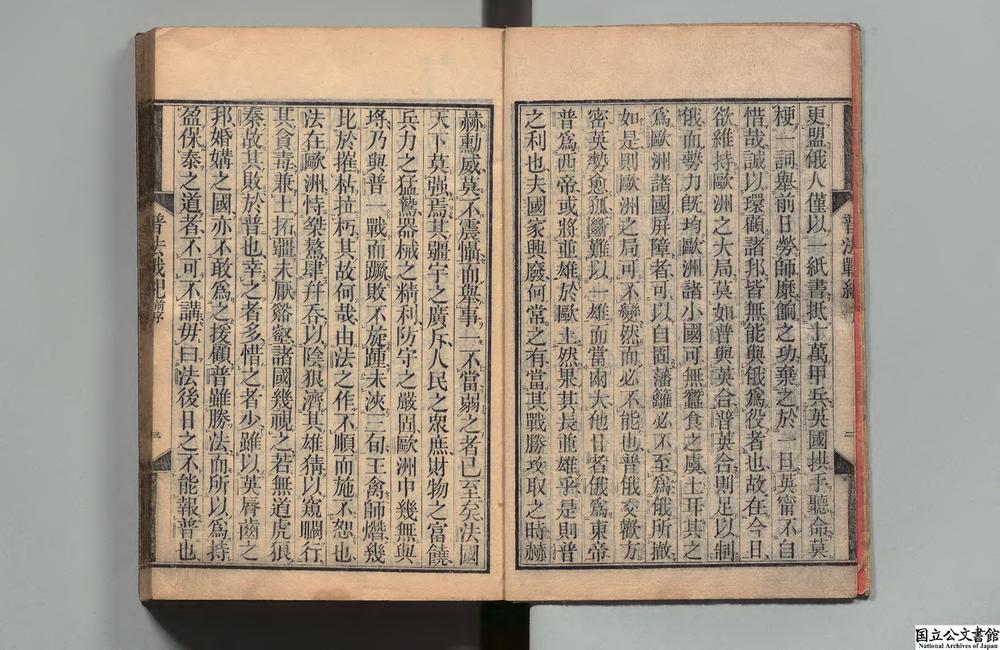 更盟俄人僅以一紙書抵十萬甲兵英國拱手聽命莫
梗一詞舉前日勞師縻餉之功棄之於一旦英甯不自
惜哉誠以環顧諸邦皆無能與俄爲役者也故在今日
欲維持歐洲之大局莫如普與英合普英合則足以制
俄而勢力旣均歐洲諸小國可無蠶食之虞土耳其之
爲歐洲諸國屏障者可以自固藩籬必不至爲俄所撤
如是則歐洲之局可不變然而必不能也普俄交歡方
密英勢愈孤斷難以一雄而當兩大他日者俄爲東帝
普爲西帝或將並雄於歐土然果其長並雄乎是則普
之利也夫國家興廢何常之有當其戰勝攻取之時赫
普法戰紀
二
赫勳威莫不震懾而舉事一不當弱之者已至矣法國
天下莫强焉其疆宇之廣斥人民之衆庶財物之富饒
兵力之猛鷙器械之精利防守之嚴固歐洲中幾無與
埒乃與普一戰而蹶敗不旋踵未浹三旬王禽師熸幾
比於摧枯拉朽其故何哉由法之作不順而施不恕也
法在歐洲恃桀驁肆幷吞以陰狠濟其雄猜以窺瞯行
其貪毒兼土拓疆未厭谿壑諸國幾視之若無道虎狼
秦故其敗於普也幸之者多惜之者少雖以英脣齒之
邦婚媾之國亦不敢爲之援顧普雖勝法而所以爲持
盈保泰之道者不可不講毋曰法後日之不能報普也
普法戰紀前序
三
国立公文書館
National Archives of Japan